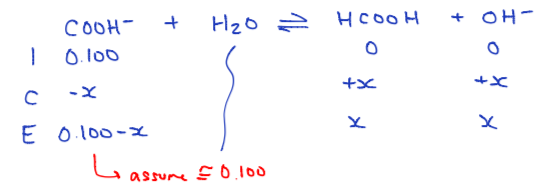 COOH⁻ + H₂O ⇌ HCOOH + OH⁻
I 0.100 0 0
C -x +x +x
E 0.100-x x x
↳ assume ≅ 0.100